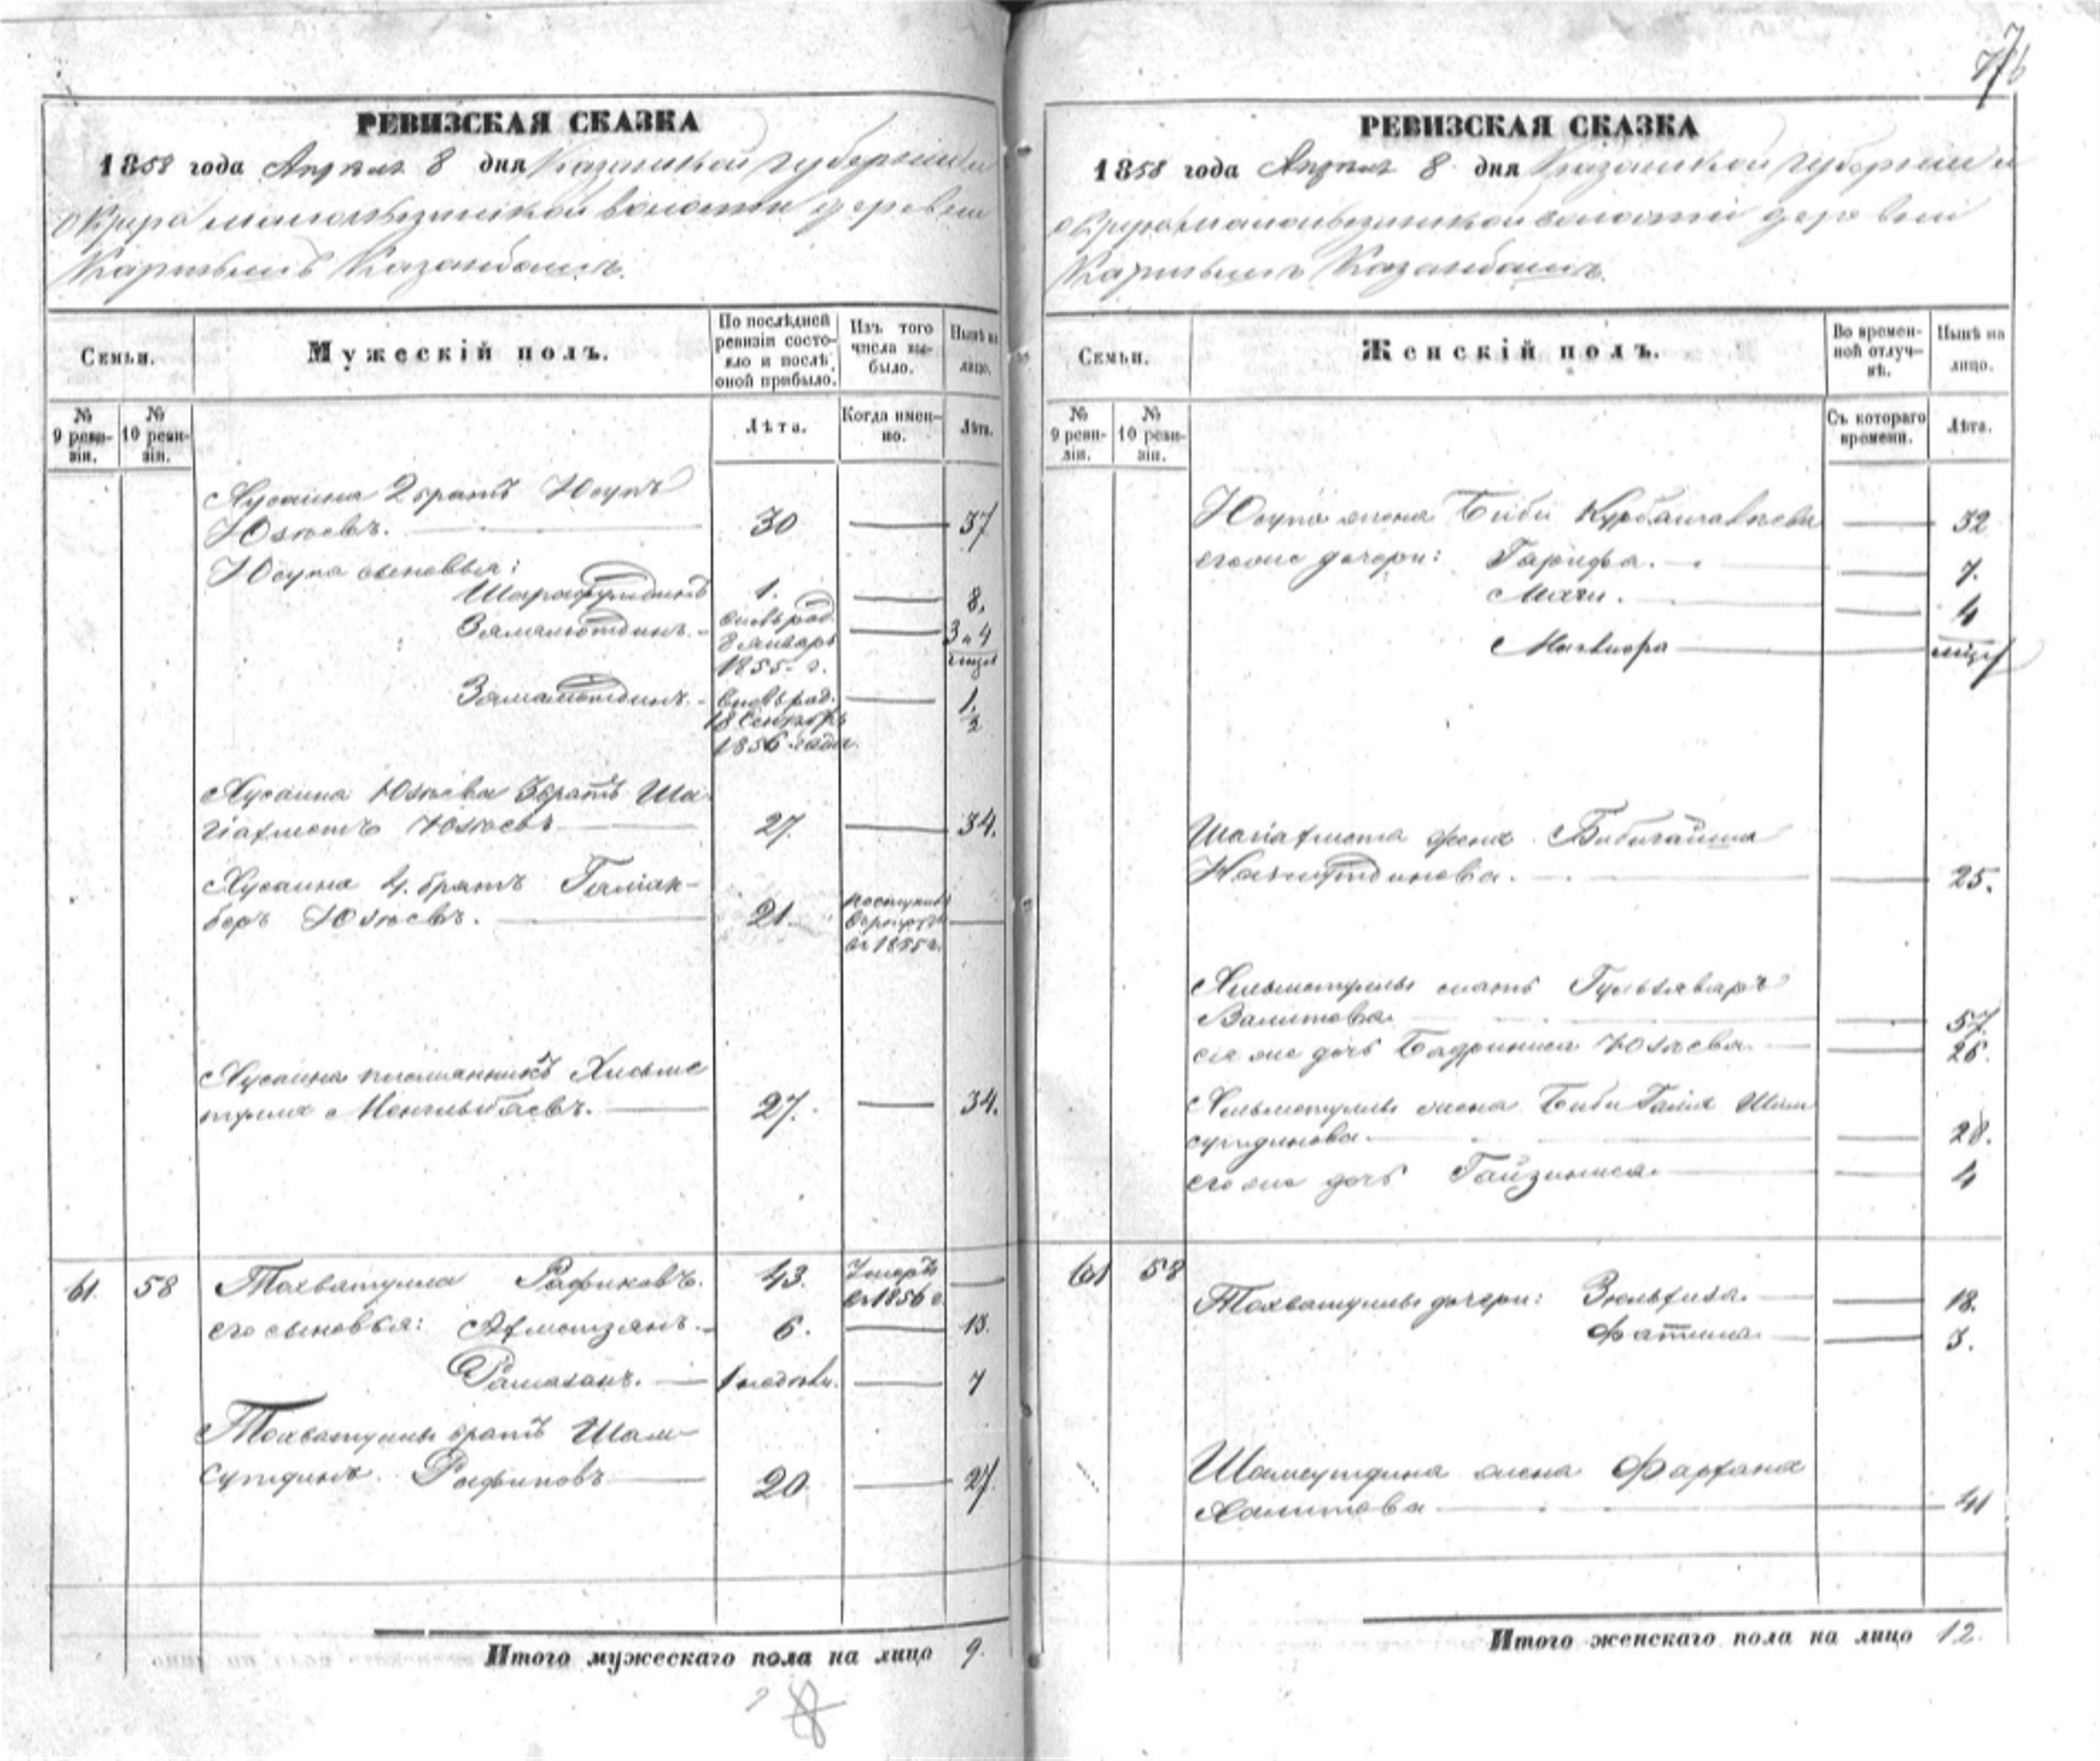 76
РЕВИЗСКАЯ СКАЗКА
1858 года Апреля 8 дня Казанской губернии и
округа волости деревни
Казанбашъ.
Семьи.
Мужескій полъ.
По послѣдней ревизіи состояло и послѣ оной прибыло.
Изъ того числа выбыло.
Нынѣ на лицо.
№ 9 ревизіи.
№ 10 ревизіи.
Лѣта.
Когда именно.
Лѣта.
Хусаина 2 братъ Юсупъ
Юзѣевъ. 30 37
Юсупа сыновья:
Шарафутдинъ 1. 8.
Замалютдинъ. вновь род. 3 и 4
8 Январь
1855 г.
Замамютдинъ. вновь род. 1 1/2
18 Сентябрь
1856 года
Хусаина Юзѣева 3 братъ Ша-
гіахметъ Юзѣевъ 27. 34.
Хусаина 4. братъ Галіак-
беръ Юзѣевъ. 21. поступилъ
въ рекруты
въ 1855 г.
Хусаина племянникъ Хисьме
тулла Менглыбаевъ. 27. 34.
61. 58 Тохватулла Рафиковъ. 43. Умеръ
въ 1856 г.
его сыновья: Ахметзянъ. 6. 13.
Рамазанъ. 1 недѣли. 7
Тохватуллы братъ Шам-
сутдинъ Рафиковъ 20 27.
Итого мужескаго пола на лицо 9.
РЕВИЗСКАЯ СКАЗКА
1858 года Апреля 8 дня Казанской губернии и
округа волости деревни
Казанбашъ.
Семьи.
Женскій полъ.
Во временной отлучкѣ.
Нынѣ на лицо.
№ 9 ревизіи.
№ 10 ревизіи.
Съ котораго времени.
Лѣта.
Юсупа жена Биби Курбангалѣева 32
его же дочери: Гарифа. 7.
4
Шагіахмета жена Бибигайша
25.
Хисьметуллы мать Гульзаваръ
Валитова. 57.
ея же дочь Бадриниса Юзѣева. 26.
Хисьметуллы жена Биби Галія Шам
сутдинова. 28.
его же дочь Гайзиниса. 4
61 58 Тохватуллы дочери: Зюльфиза. 18.
Фатима. 3.
Шамсутдина жена Фархана
Халитова. 41
Итого женскаго пола на лицо 12.